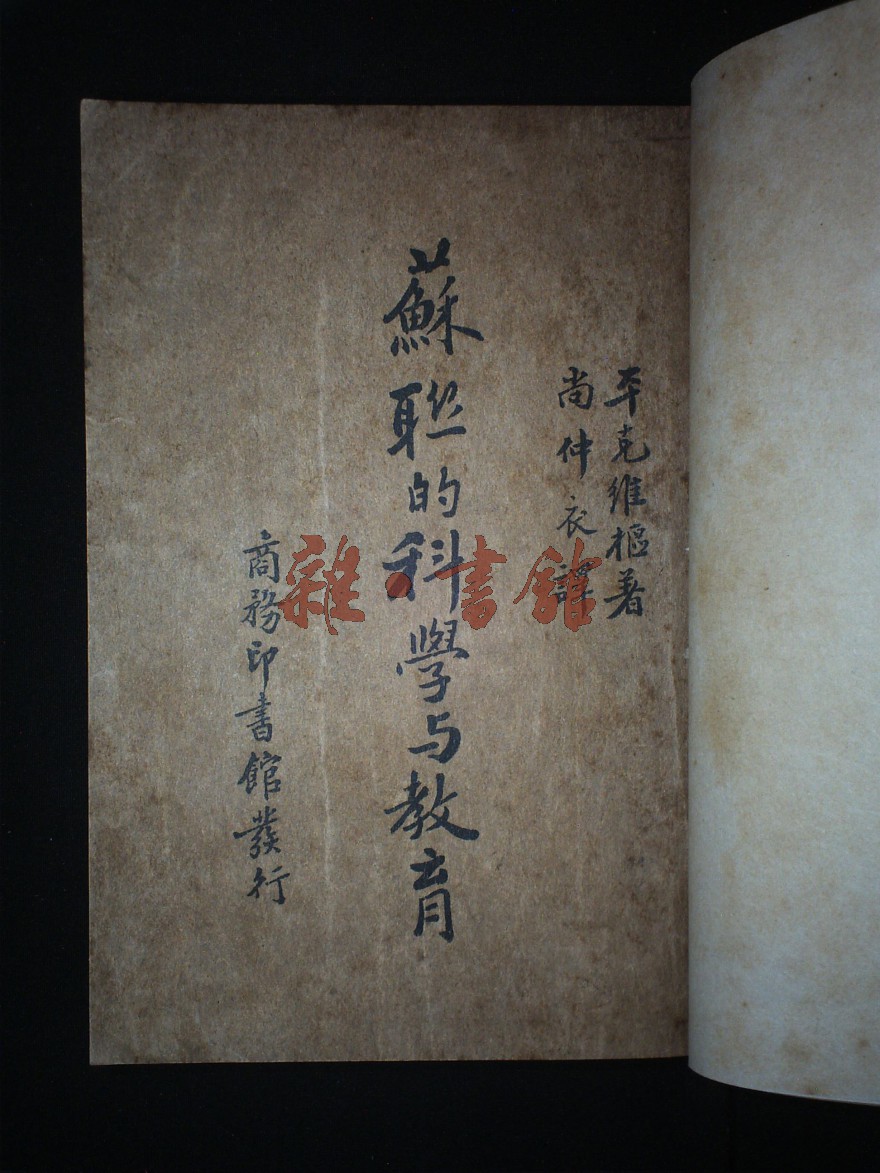 平克維樞著
尚仲衣譯
蘇聯的科學与教育
商務印書館發行
雜·書館